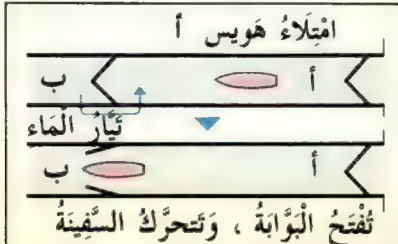 امْتِلَاءُ هَويس أ
أ ب
تَيَّارُ الْمَاء
أ ب
تُفْتَحُ الْبَوَّابَةُ ، وَتَتحرَّكُ السَّفِينَةُ